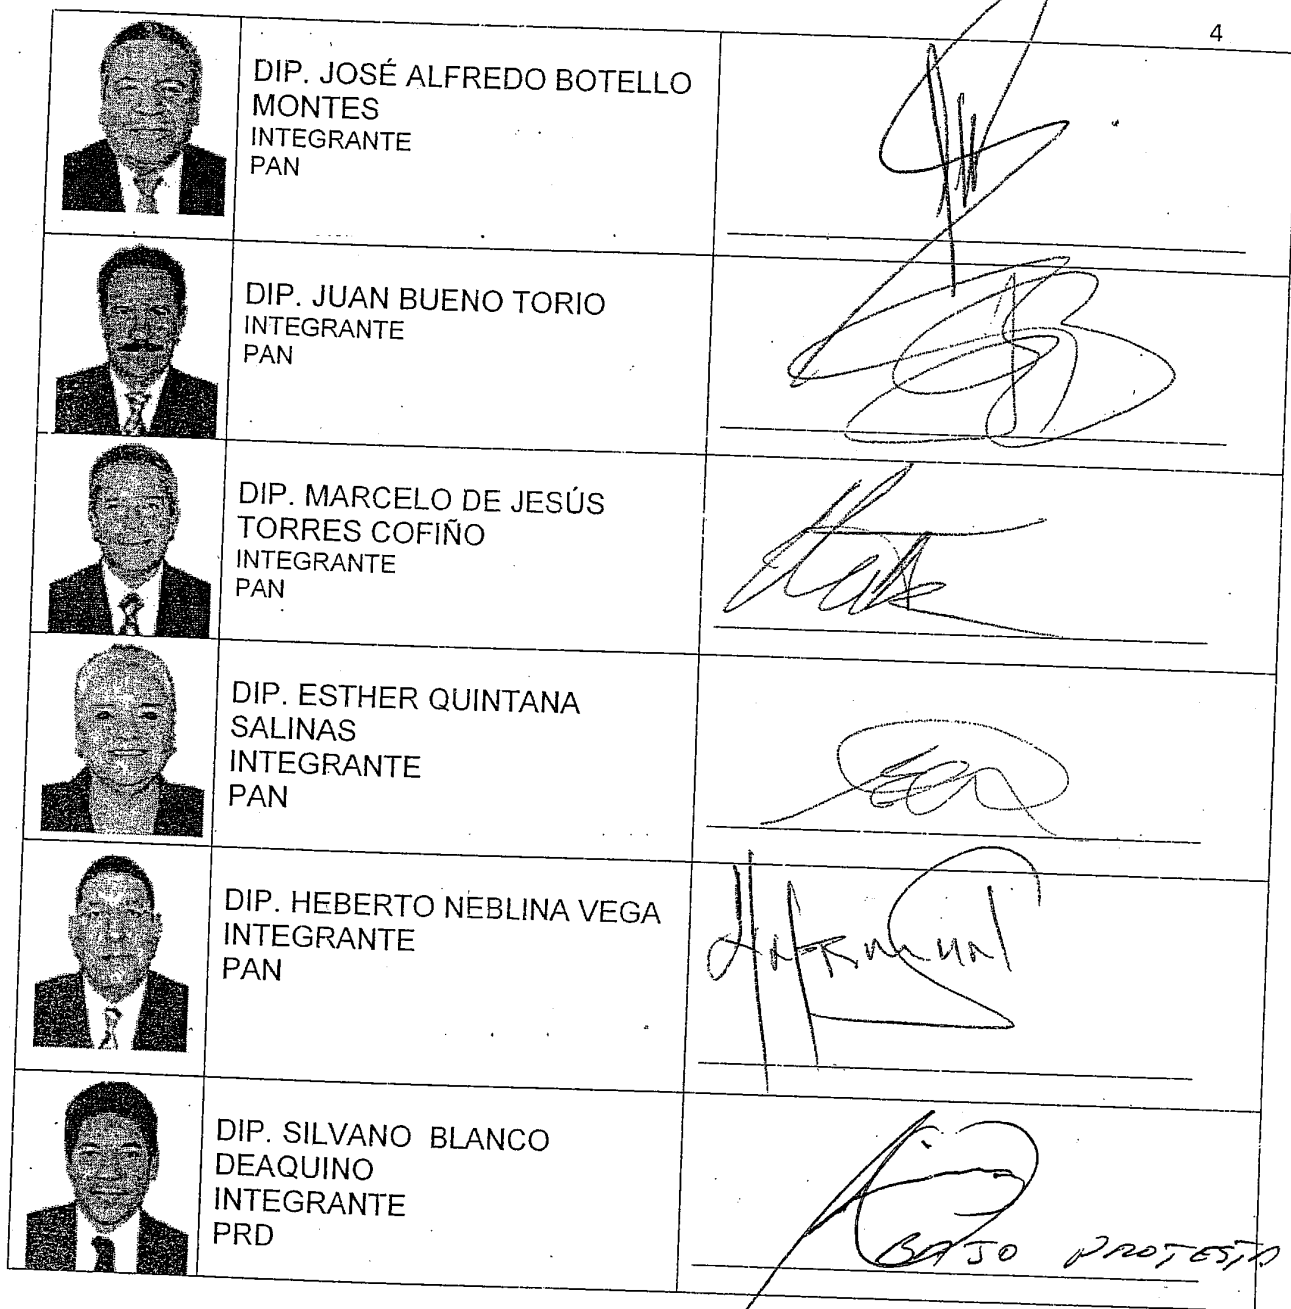 4
DIP. JOSÉ ALFREDO BOTELLO
MONTES
INTEGRANTE
PAN
DIP. JUAN BUENO TORIO
INTEGRANTE
PAN
DIP. MARCELO DE JESÚS
TORRES COFIÑO
INTEGRANTE
PAN
DIP. ESTHER QUINTANA
SALINAS
INTEGRANTE
PAN
DIP. HEBERTO NEBLINA VEGA
INTEGRANTE
PAN
DIP. SILVANO BLANCO
DEAQUINO
INTEGRANTE
PRD
BAJO PROTESTA